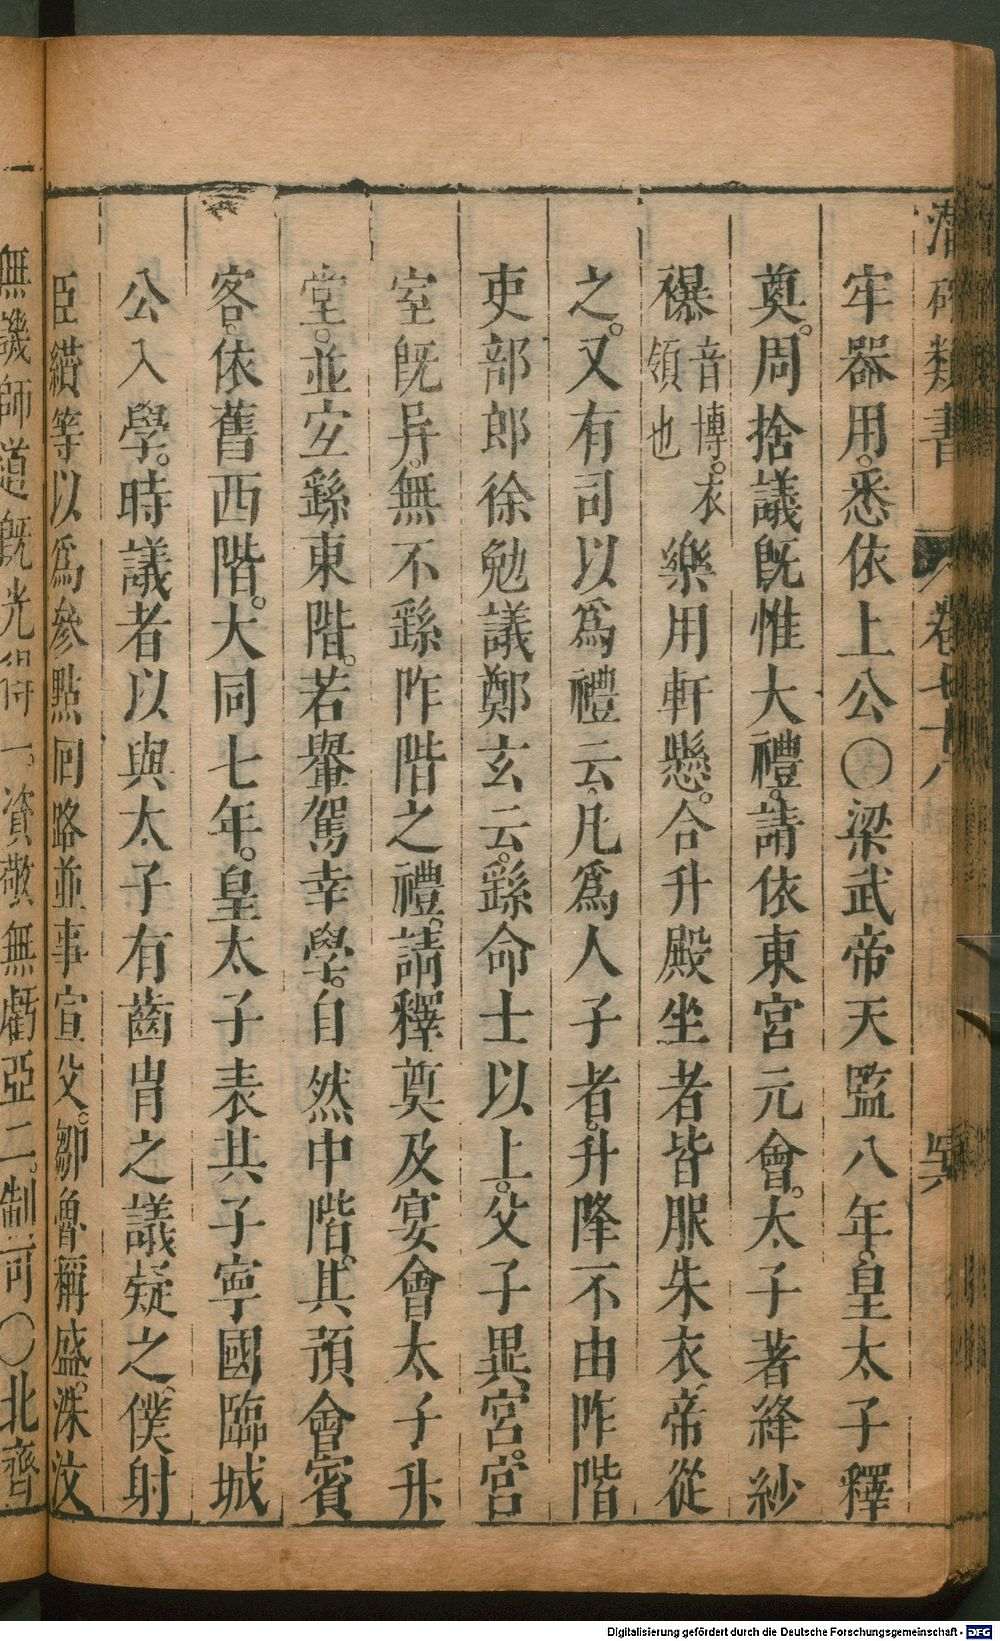 潛確類書 卷七十八
牢器用。悉依上公○梁武帝天監八年。皇太子釋
奠。周捨議旣惟大禮。請依東宮元會。太子著絳紗
襮音博。衣領也樂用軒懸。合升殿坐者皆服朱衣。帝從
之。又有司以爲禮云。凡爲人子者。升降不由阼階
吏部郎徐勉議鄭玄云。繇命士以上。父子異宮。宮
室旣异。無不繇阼階之禮。請釋奠及宴會太子升
堂。並宐繇東階。若轝駕幸學。自然中階。其預會賓
客。依舊西階。大同七年。皇太子表其子寧國臨城
公入學。時議者以與太子有齒冑之議疑之。僕射
臣纘等以爲參點回路並事宣父。鄒魯稱盛。洙汶
無譏師道旣光得一。資敬無虧亞二。制可○北齊
Digitalisierung gefördert durch die Deutsche Forschungsgemeinschaft - DFG